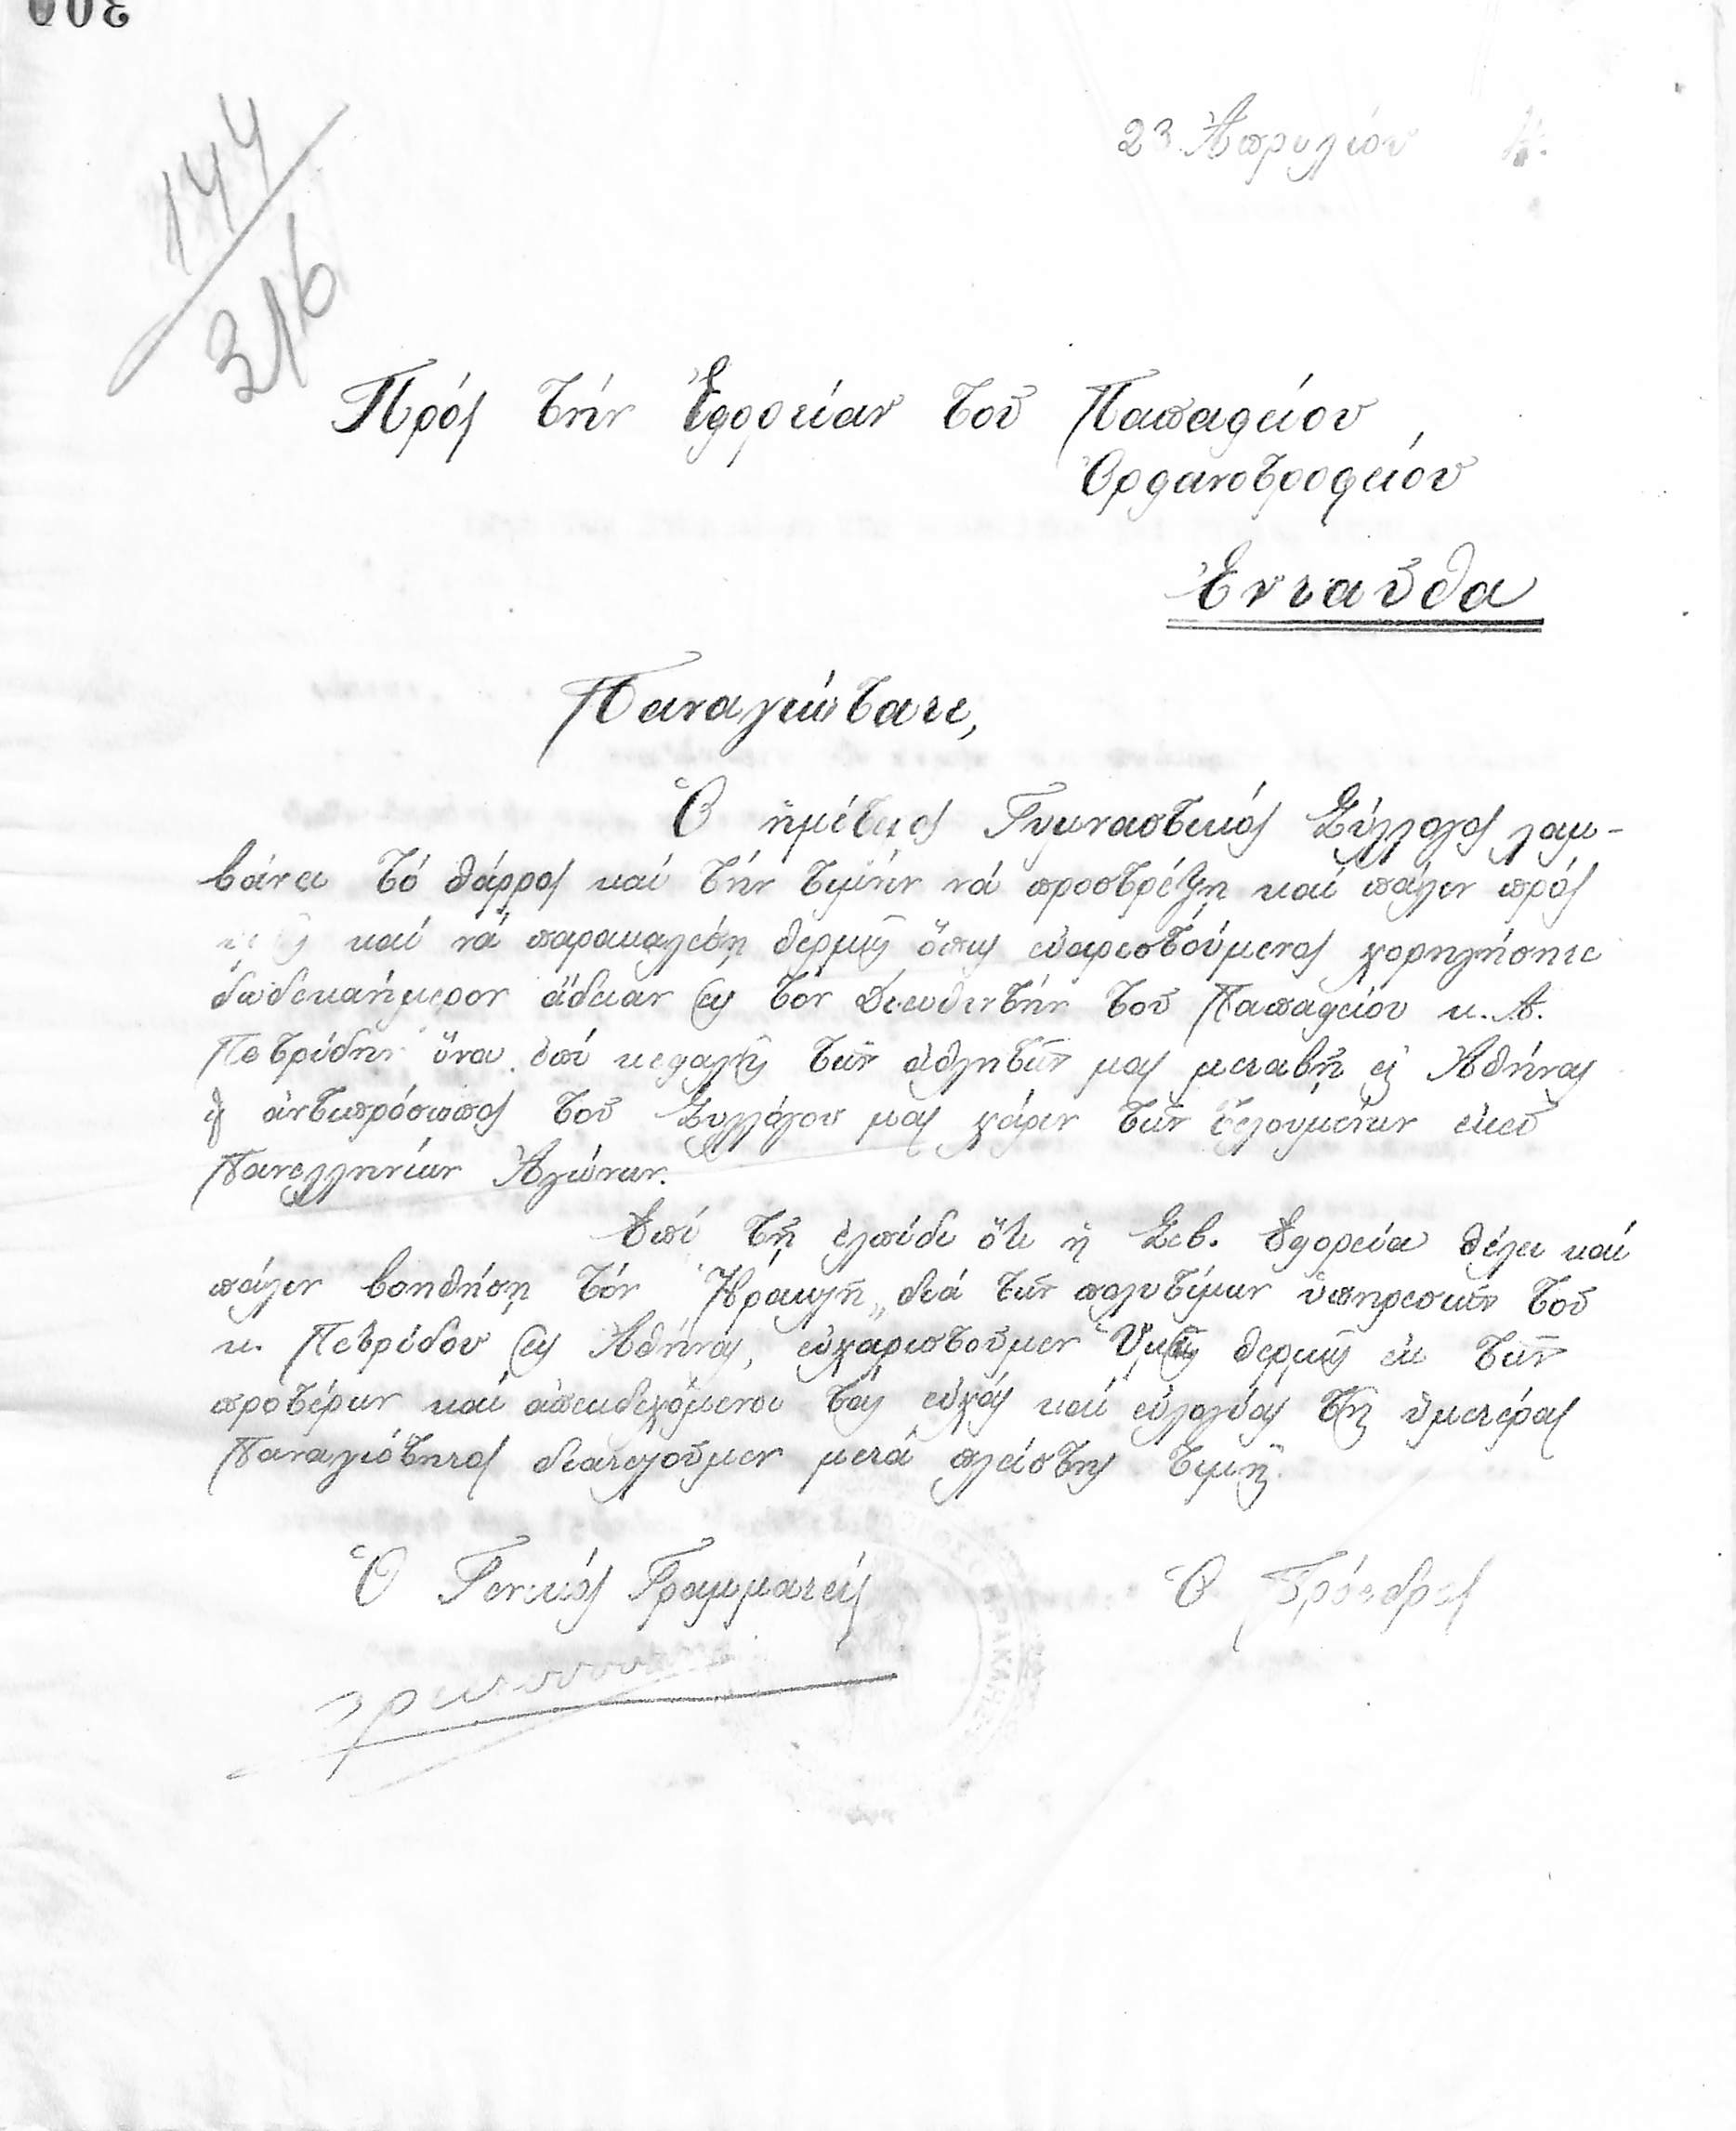 300
23 Ἀπριλίου
144
316
Πρός τήν Ἐφορείαν τοῦ Παπαφείου
Ὀρφανοτροφείου
Ἐνταῦθα
Παναγιώτατε,
Ὁ ἡμέτερος Γυμναστικός Σύλλογος λαμ-
βάνει τό θάρρος καί τήν τιμήν νά προστρέξῃ καί πάλιν πρός
καί νά παρακαλέσῃ θερμῶς ὅπως εὐαρεστούμενος χορηγήσητε
δωδεκαήμερον ἄδειαν εἰς τόν Διευθυντήν τοῦ Παπαφείου κ. Α.
Πετρίδην ἵνα ἐπί κεφαλῆς τῶν ἀθλητῶν μας μεταβῇ εἰς Ἀθήνας
ὡς ἀντιπρόσωπος τοῦ Συλλόγου μας χάριν τῶν τελουμένων ἐκεῖ
Πανελληνίων Ἀγώνων.
Ἐπί τῇ ἐλπίδι ὅτι ἡ Σεβ. Ἐφορεία θέλει καί
πάλιν βοηθήσῃ τόν "Ἡρακλῆ" διά τῶν πολυτίμων ὑπηρεσιῶν τοῦ
κ. Πετρίδου εἰς Ἀθήνας, εὐχαριστοῦμεν Ὑμᾶς θερμῶς ἐκ τῶν
προτέρων καί ἀπεκδεχόμενοι τάς εὐχάς καί εὐλογίας τῆς ὑμετέρας
Παναγιότητος διατελοῦμεν μετά πλείστης τιμῆς.
Ὁ Γενικός Γραμματεύς Ὁ Πρόεδρος